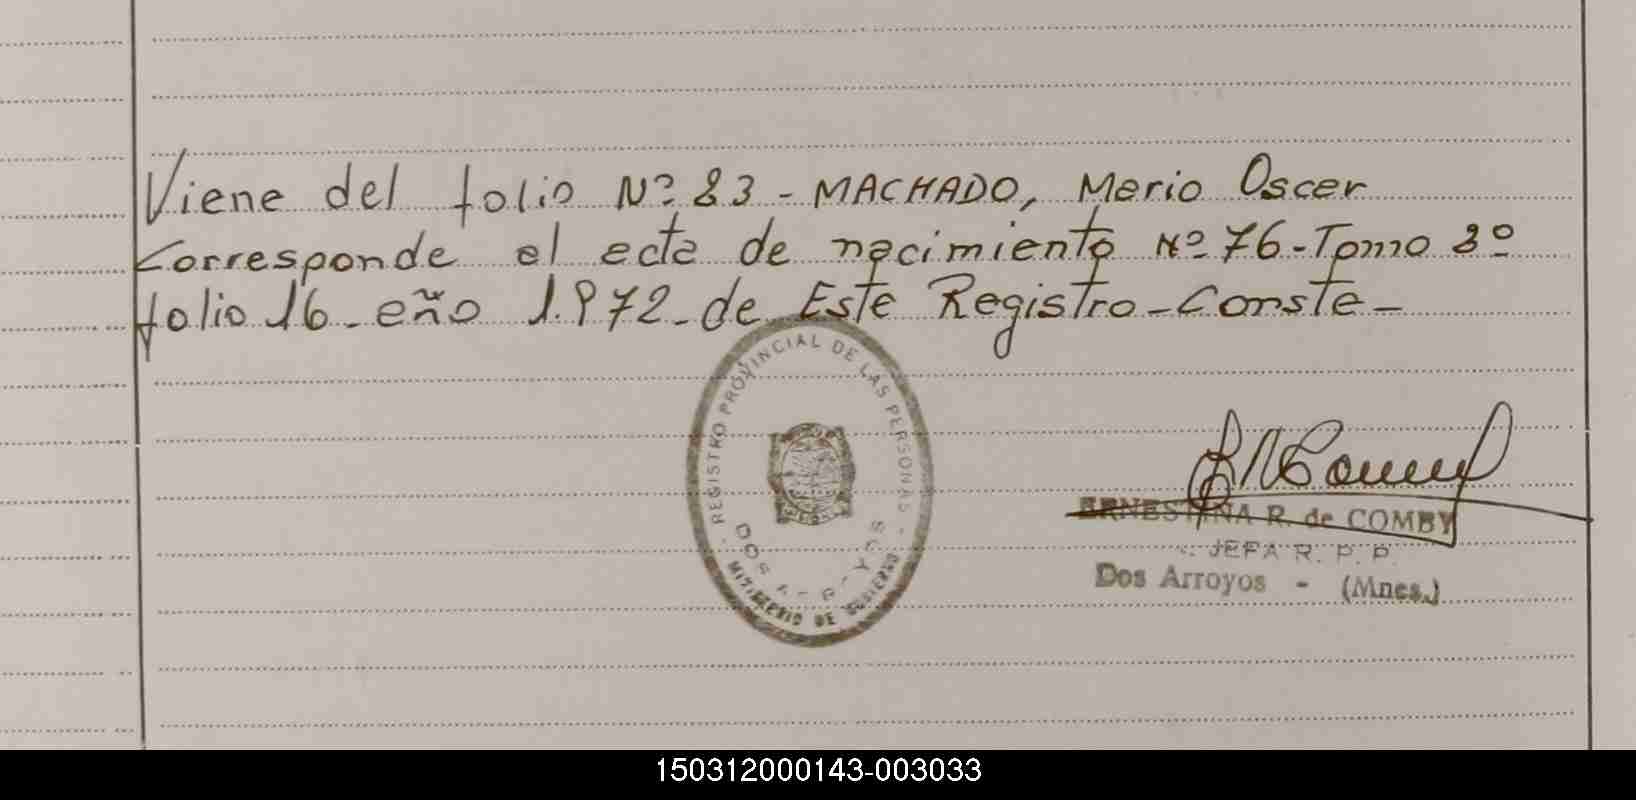 Viene del folio Nº 83 - MACHADO, Mario Oscar
Corresponde al acta de nacimiento Nº 76 - Tomo 3º
folio 16 - año 1.972 - de Este Registro - Conste -
REGISTRO PROVINCIAL DE LAS PERSONAS
DOS A-R-YOS
MINISTERIO DE GOBIERNO
ERNESTINA R. de COMBY
JEFA R. P. P.
Dos Arroyos - (Mnes.)
150312000143-003033